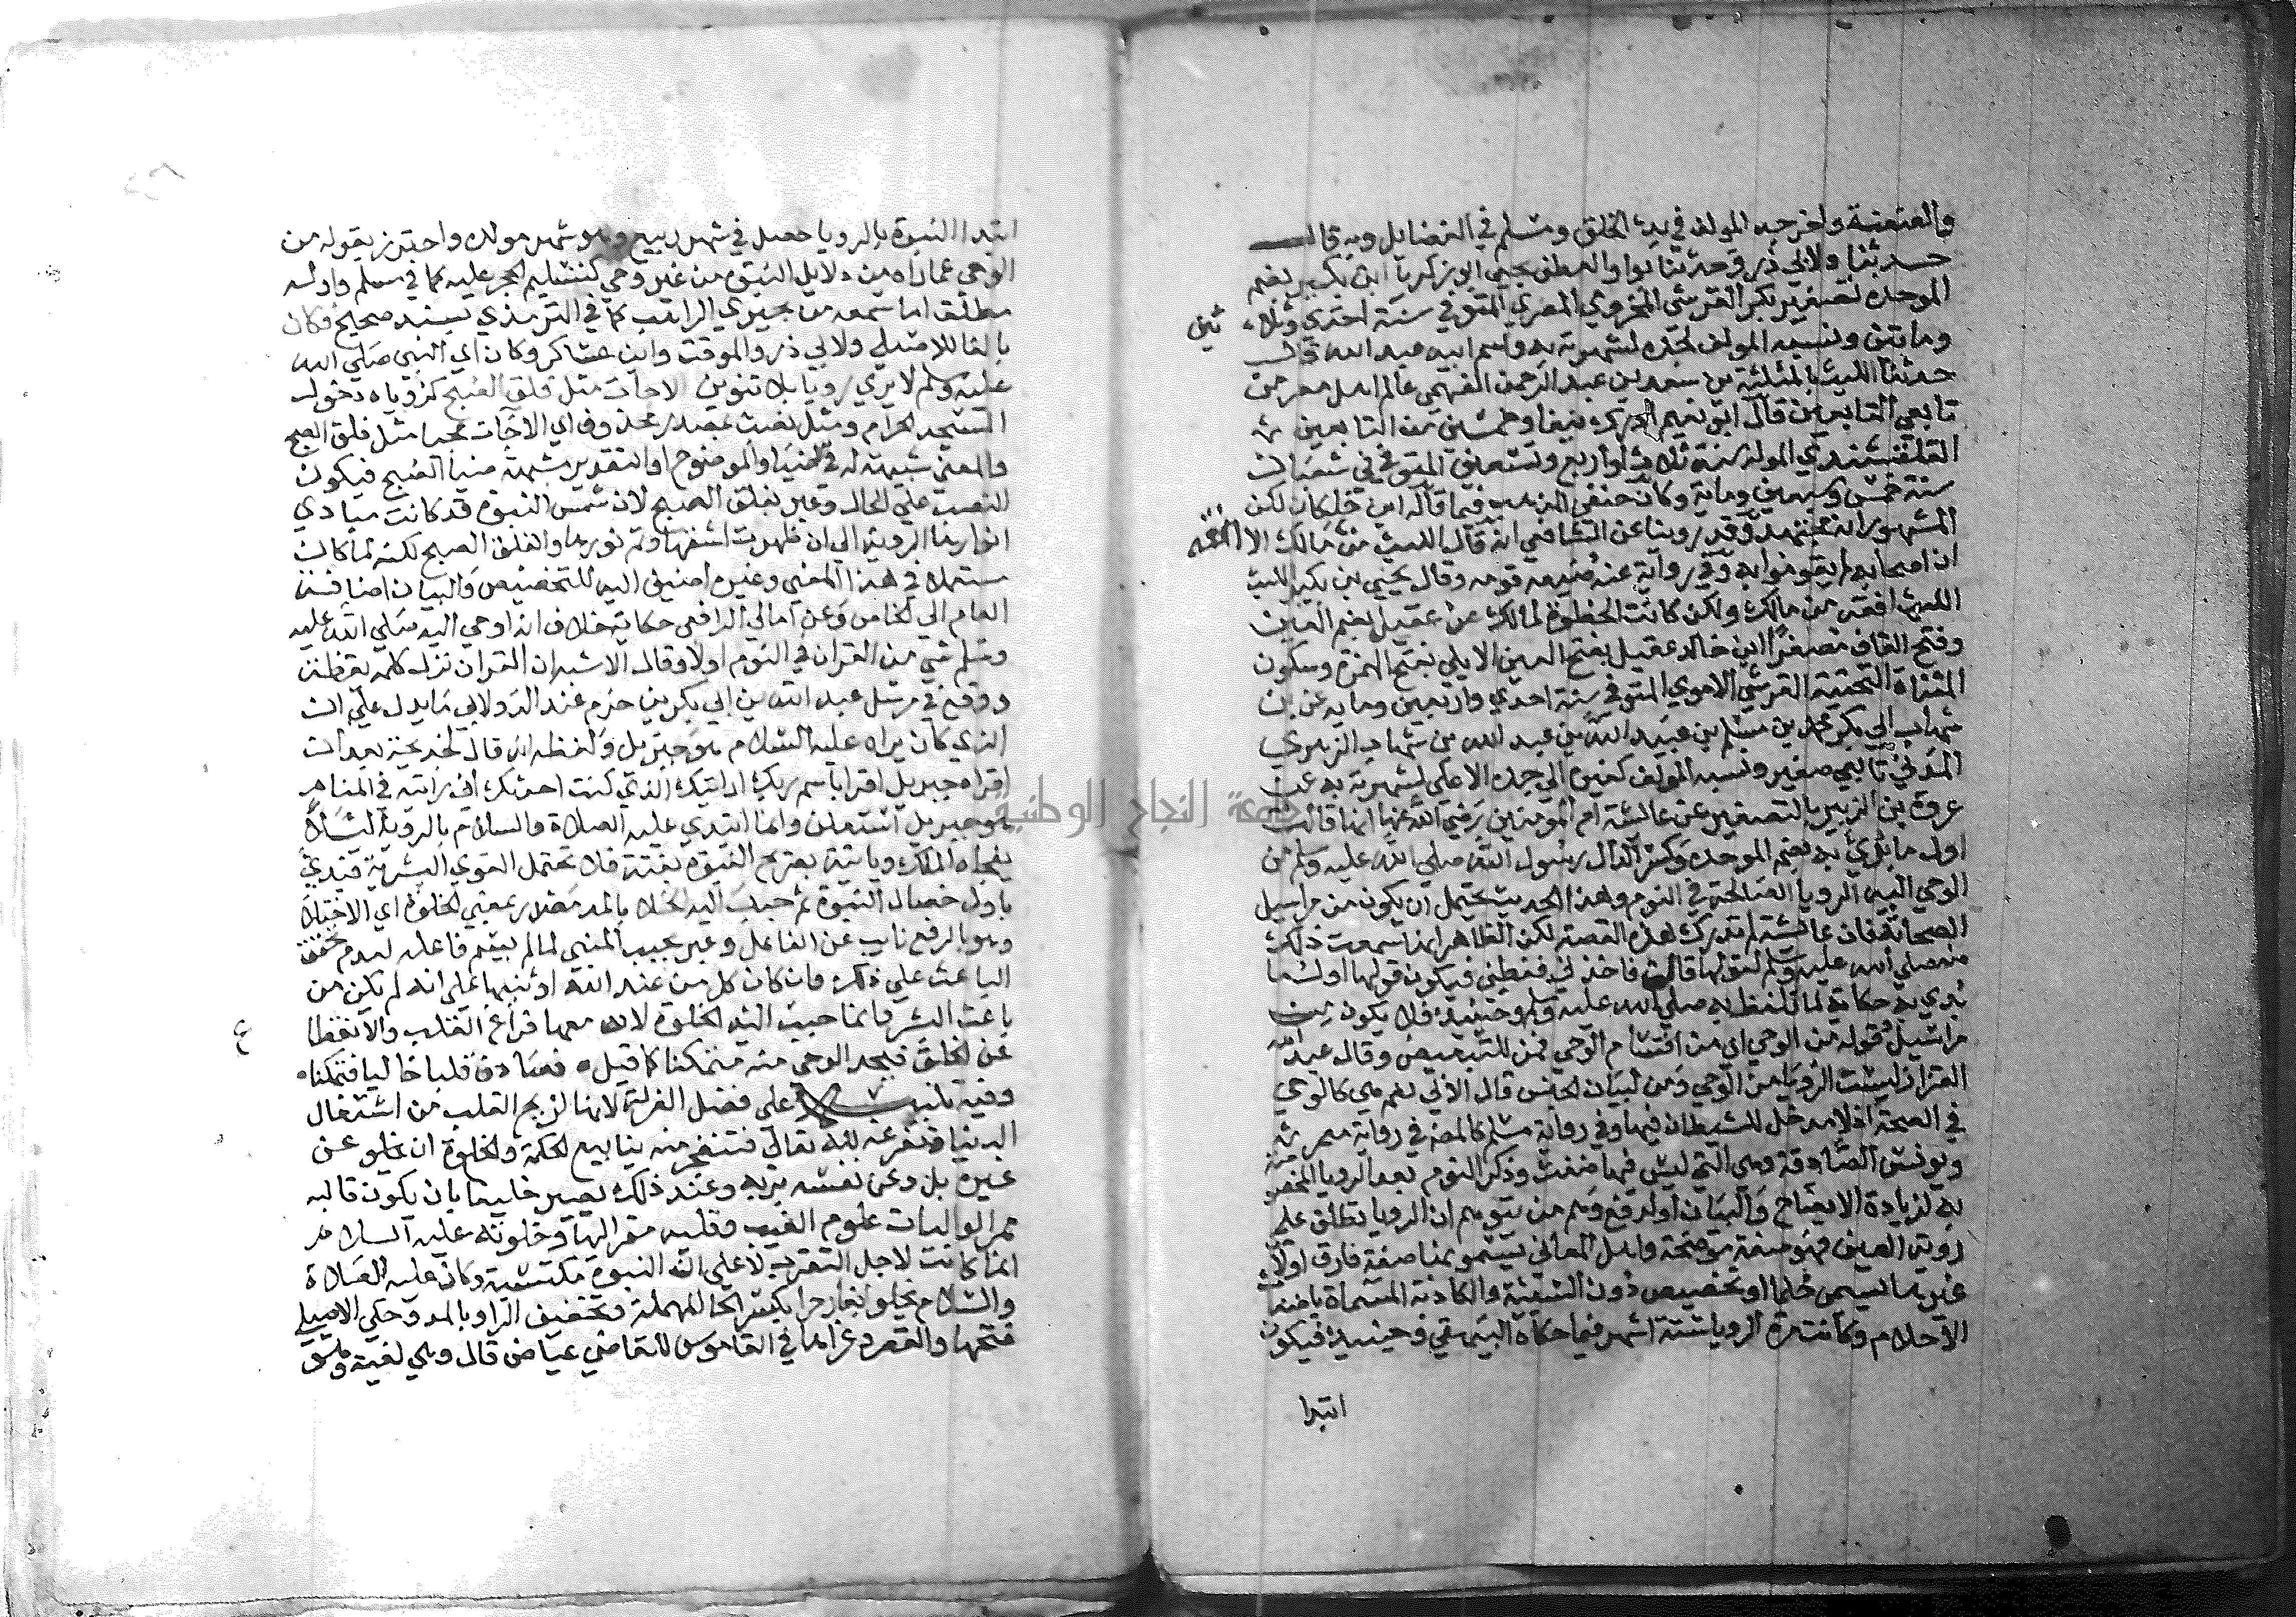 والعنعنة واخرجه المولف في بدء الخلق ومسلم في الفضايل وبه قال
حدثنا ولابي ذر وحدثنا بواو العطف يحيي ابو زكريا ابن بكير بضم
الموحدة تصغير بكر القرشي المخزومي المصري المتوفي سنة احدي وثلا ثين
ومايتين ونسبه المولف لجده لشهرته به واسم ابيه عبد الله قال
حدثنا الليث بالمثلثة بن سعد بن عبد الرحمن الفهمي عالم اهل مصر من
تابعي التابعين قال ابو نعيم ادرك نيفا وخمسين من التابعين
القلقشندي المولد سنة ثلاث او اربع وتسعين المتوفي في شعبان
سنة خمس وسبعين وماية وكان حنفي المذهب فيما قاله ابن خلكان لكن
المشهور انه مجتهد وقد روينا عن الشافعي انه قال الليث افقه من مالك الا
ان اصحابه لم يقوموا به وفي رواية عنه ضيعه قومه وقال يحيي بن بكير
الليث افقه من مالك ولكن كانت الحظوة لمالك عن عقيل بضم العين
وفتح القاف مصغرا ابن خالد عقيل بفتح العين الايلي بفتح الهمزة وسكون
المثناة التحتية القرشي الاموي المتوفي سنة احدي واربعين وماية عن ابن
شهاب ابي بكر محمد بن مسلم بن عبيد الله بن عبد الله بن شهاب الزهري
المدني تابعي صغير ونسبه المولف كغيره الي جده الاعلي لشهرته به عن
عروة بن الزبير بالتصغير عن عائشة ام المومنين رضي الله عنها انها قالت
اول ما بدي به بضم الموحدة وكسر الدال رسول الله صلي الله عليه وسلم من
الوحي اليه الرويا الصالحة في النوم وهذا الحديث يحتمل ان يكون من مراسيل
الصحابة فان عائشة لم تدرك هذه القصة لكن الظاهر انها سمعت ذلك
منه صلي الله عليه وسلم لقولها قال فاخذني فغطني فيكون قولها اول ما
بدي به حكاية لما تلفظ به صلي الله عليه وسلم وحينيذ فلا يكون من
مراسيل قوله من الوحي اي من اقسام الوحي فمن للتبعيض وقال عبد الله
القزاز ليست الرويا من الوحي ومن لبيان الجنس قال الابي نعم هي كالوحي
في الصحة اذ لا مدخل للشيطان فيها وفي رواية مسلم كالمصنف في رواية معمر
ويونس الصادقة وهي التي ليس فيها ضغث وذكر النوم بعد الرويا المخصوصة
به لزيادة الايضاح والبيان او لدفع وهم من يتوهم ان الرويا تطلق علي
روية العين فهو صفة موضحة واهل المعاني يسمونها صفة فارقة اولان
غيرها يسمي حلما او تخصيص دون السيئة والكاذبة المسماة باضغاث
الاحلام وكانت مدة الرويا ستة اشهر فيما حكاه البيهقي وحينيذ فيكون
ابتدا
ابتدا النبوة بالرويا حصل في شهر ربيع وهو شهر مولده واحترز بقوله من
الوحي عما راه من دلايل النبوة من غير وحي كتسليم الحجر عليه كما في مسلم واوله
مطلقا ما سمعه من بحيري الراهب كما في الترمذي بسند صحيح فكان
بالفا للاصيلي ولابي ذر والوقت وابن عساكر وكان اي النبي صلي الله
عليه وسلم لا يري رويا بلا تنوين الا جات مثل فلق الصبح كروياه دخول
المسجد الحرام ومثل نصب بمصدر محذوف اي الا جات مجيا مثل فلق الصبح
والمعني شبيهة له في الضيا والوضوح او التقدير مشبهة ضيا الصبح فيكون
النصب علي الحال وعبر بفلق الصبح لان شمس النبوة قد كانت مبادي
انوارها الرويا الي ان ظهرت اشعتها وتم نورها والفلق الصبح لكنه لما كان
مستعملا في هذا المعني وغيره اضيف اليه للتخصيص والبيان اضافة
العام الي الخاص وعن امالي الرافعي حكاية خلاف انه اوحي اليه صلي الله عليه
وسلم شي من القران في النوم اولا وقال الاشبه ان القران نزل كله يقظة
ووقع في مرسل عبد الله بن ابي بكر بن حزم عند الدولابي ما يدل علي ان
الذي كان يراه عليه السلام هو جبريل ولفظه انه قال لخديجة بعد ان
اقراه جبريل اقرا باسم ربك ارايتك الذي كنت احدثك اني رايته في المنام
هو جبريل استعلن وانما ابتدي عليه الصلاة والسلام بالرويا ليلا
يفجاه الملك وياتيه بصريح النبوة بغتة فلا تحتمل القوي البشرية فبدي
باول خصال النبوة ثم حبب اليه الخلا بالمد مصدر بمعني الخلوة اي الاختلا
وهو بالرفع نايب عن الفاعل وعبر بحبب المبني لما لم يسم فاعله لعدم تحقق
الباعث علي ذلك وان كان كل من عند الله او تنبيها علي انه لم يكن من
باعث البشر وانما حبب اليه الخلوة لان معها فراغ القلب والانقطا ع
عن الخلق فيجد الوحي منه متمكنا كما قيل ه فصادف قلبا خاليا فتمكنا ه
وفيه تنبيه علي فضل العزلة لانها تريح القلب من اشتغال
الدنيا وتفرغه لله تعالي فتنفجر منه ينابيع الحكمة والخلوة ان يخلو عن
غيره بل وعن نفسه بربه وعند ذلك يصير خليقا بان يكون قالبه
ممرا لواردات علوم الغيب وقلبه مقرا لها وخلوته عليه السلام
انما كانت لاجل التقرب لا علي ان النبوة مكتسبة وكان عليه الصلاة
والسلام يخلو بغار حرا بكسر الحا المهملة وتخفيف الرا وبالمد وحكي الاصيلي
فتحها والقصر وعزاها في القاموس للقاضي عياض قال وهي لغية وهو